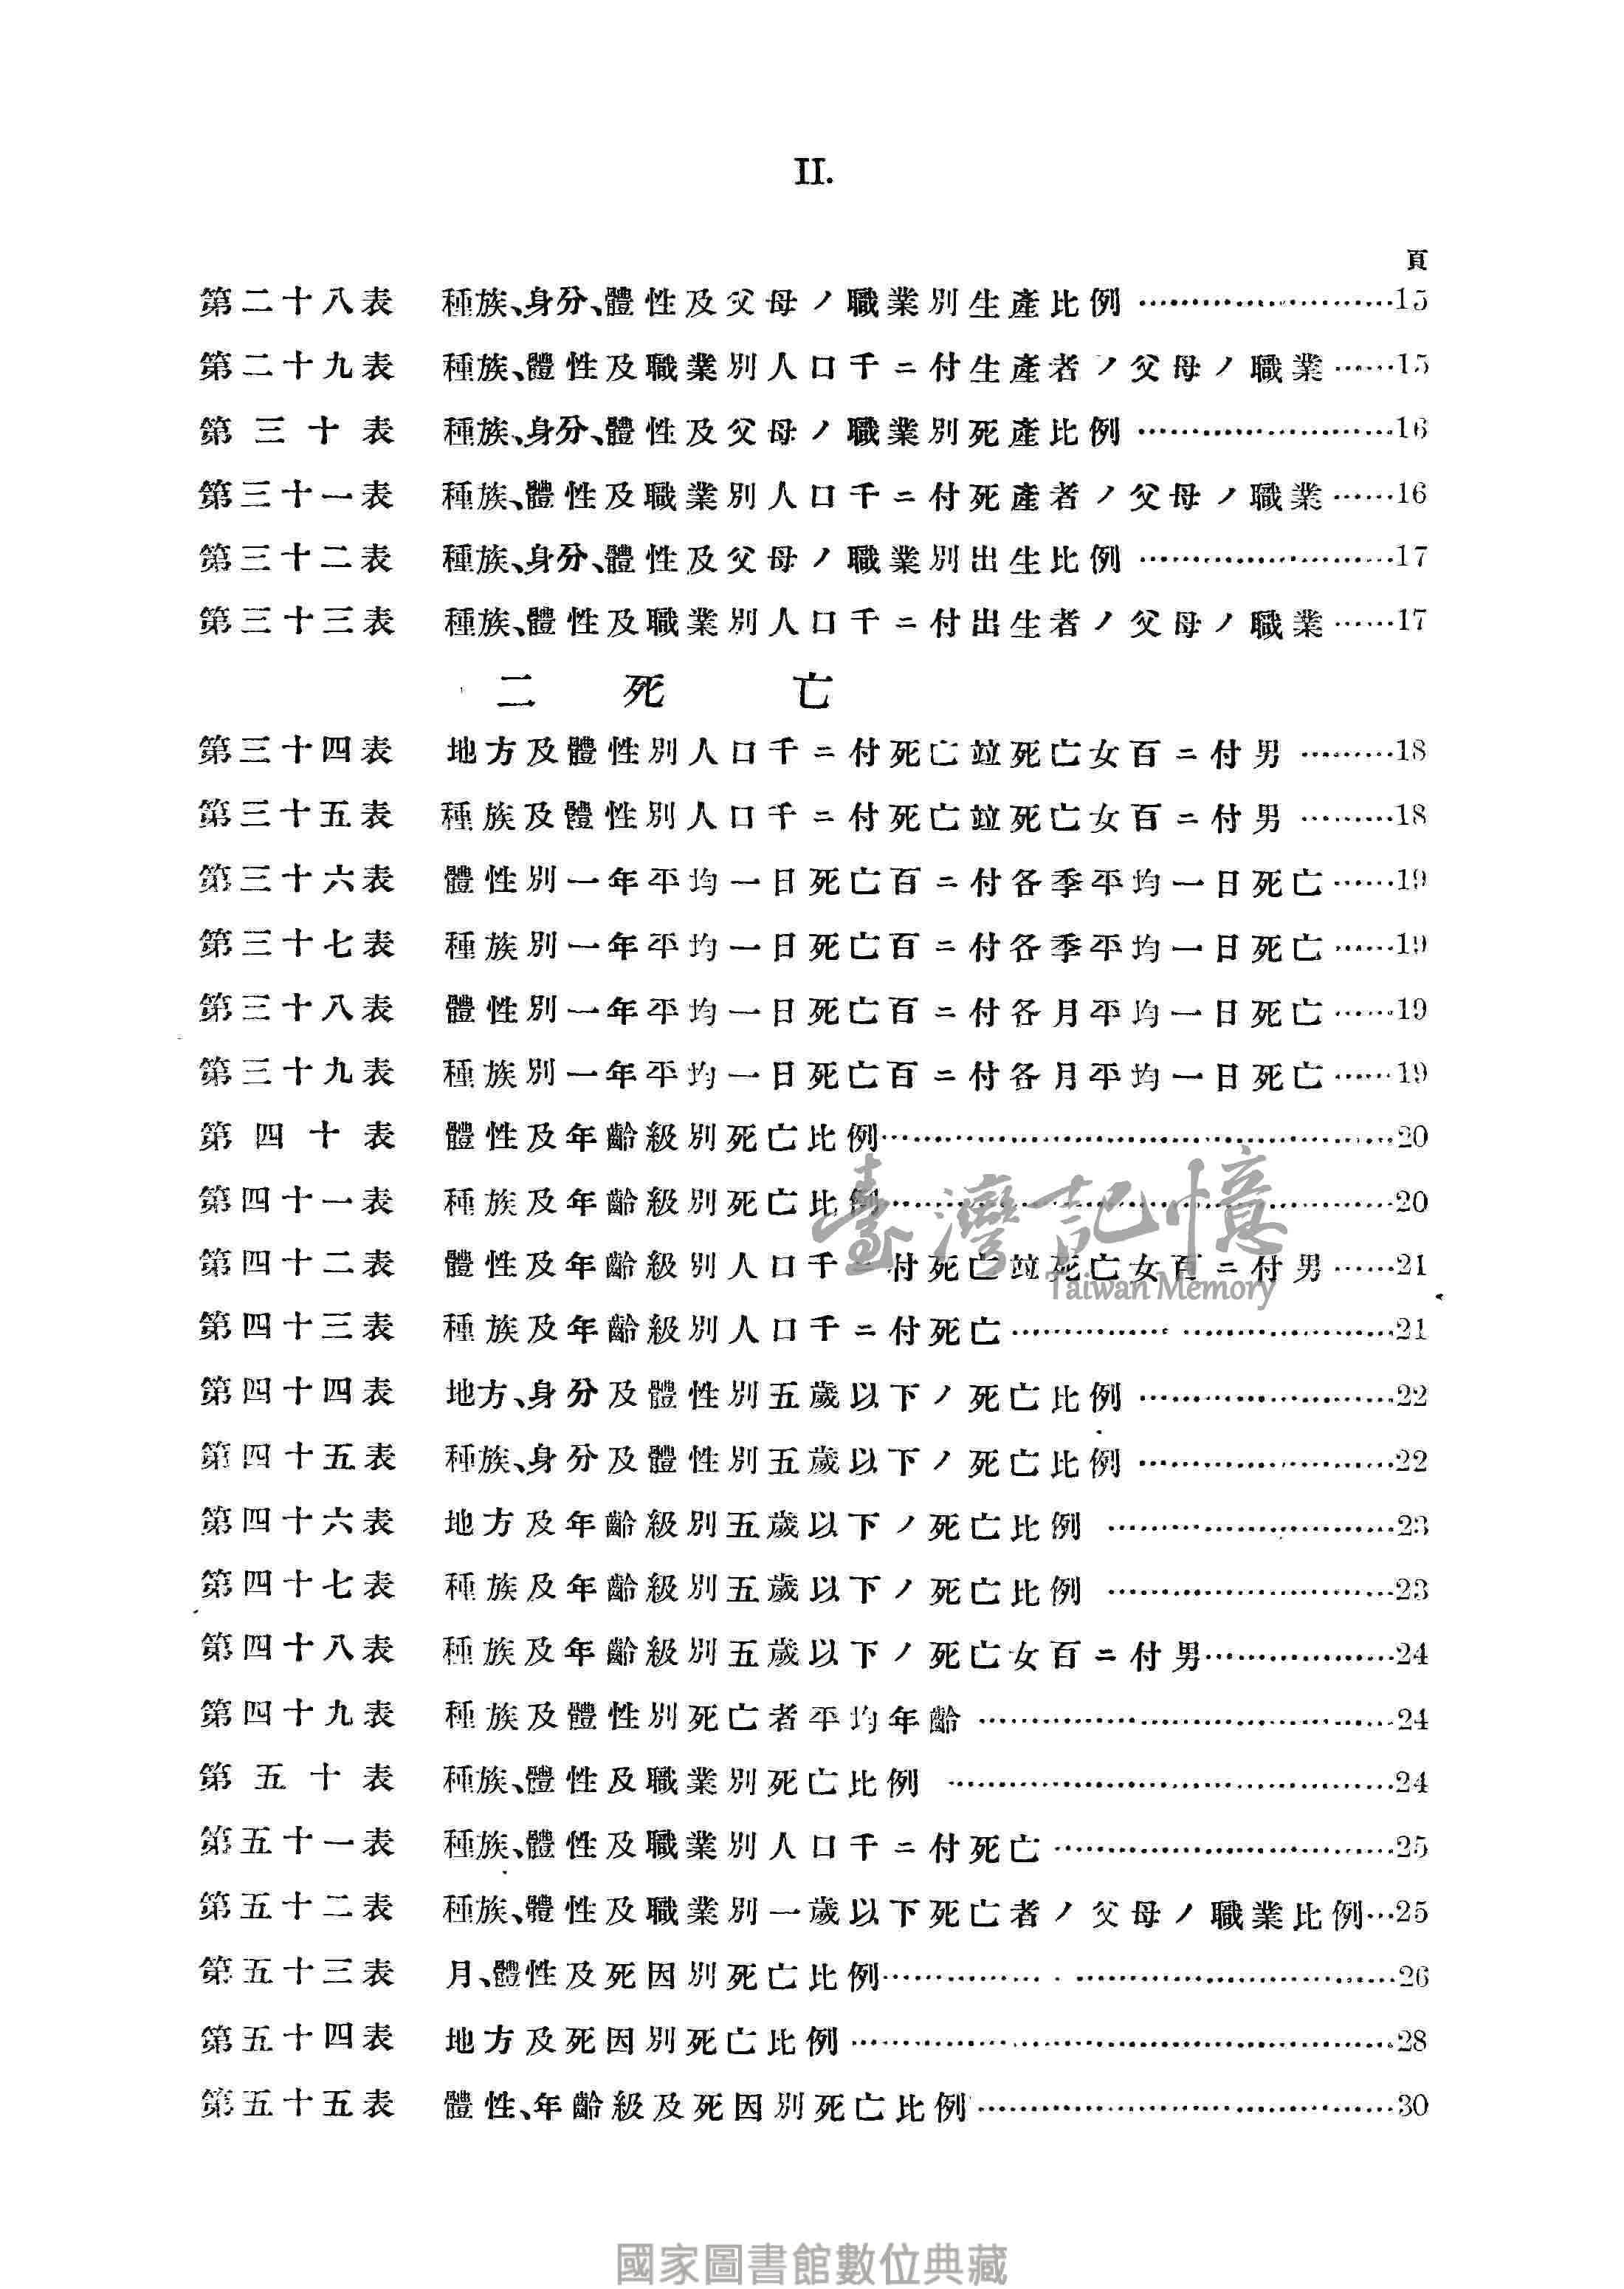 II.
頁
第二十八表 種族、身分、體性及父母ノ職業別生產比例……………………15
第二十九表 種族、體性及職業別人口千ニ付生產者ノ父母ノ職業……15
第三十表 種族、身分、體性及父母ノ職業別死產比例……………………16
第三十一表 種族、體性及職業別人口千ニ付死產者ノ父母ノ職業……16
第三十二表 種族、身分、體性及父母ノ職業別出生比例……………………17
第三十三表 種族、體性及職業別人口千ニ付出生者ノ父母ノ職業……17
二 死 亡
第三十四表 地方及體性別人口千ニ付死亡竝死亡女百ニ付男………18
第三十五表 種族及體性別人口千ニ付死亡竝死亡女百ニ付男………18
第三十六表 體性別一年平均一日死亡百ニ付各季平均一日死亡……19
第三十七表 種族別一年平均一日死亡百ニ付各季平均一日死亡……19
第三十八表 體性別一年平均一日死亡百ニ付各月平均一日死亡……19
第三十九表 種族別一年平均一日死亡百ニ付各月平均一日死亡……19
第四十表 體性及年齡級別死亡比例……………………………………20
第四十一表 種族及年齡級別死亡比例……………………………………20
臺灣記憶
第四十二表 體性及年齡級別人口千ニ付死亡竝死亡女百ニ付男……21
Taiwan Memory
第四十三表 種族及年齡級別人口千ニ付死亡……………………………21
第四十四表 地方、身分及體性別五歲以下ノ死亡比例……………………22
第四十五表 種族、身分及體性別五歲以下ノ死亡比例……………………22
第四十六表 地方及年齡級別五歲以下ノ死亡比例………………………23
第四十七表 種族及年齡級別五歲以下ノ死亡比例………………………23
第四十八表 種族及年齡級別五歲以下ノ死亡女百ニ付男………………24
第四十九表 種族及體性別死亡者平均年齡………………………………24
第五十表 種族、體性及職業別死亡比例…………………………………24
第五十一表 種族、體性及職業別人口千ニ付死亡…………………………25
第五十二表 種族、體性及職業別一歲以下死亡者ノ父母ノ職業比例…25
第五十三表 月、體性及死因別死亡比例……………………………………26
第五十四表 地方及死因別死亡比例………………………………………28
第五十五表 體性、年齡級及死因別死亡比例………………………………30
國家圖書館數位典藏